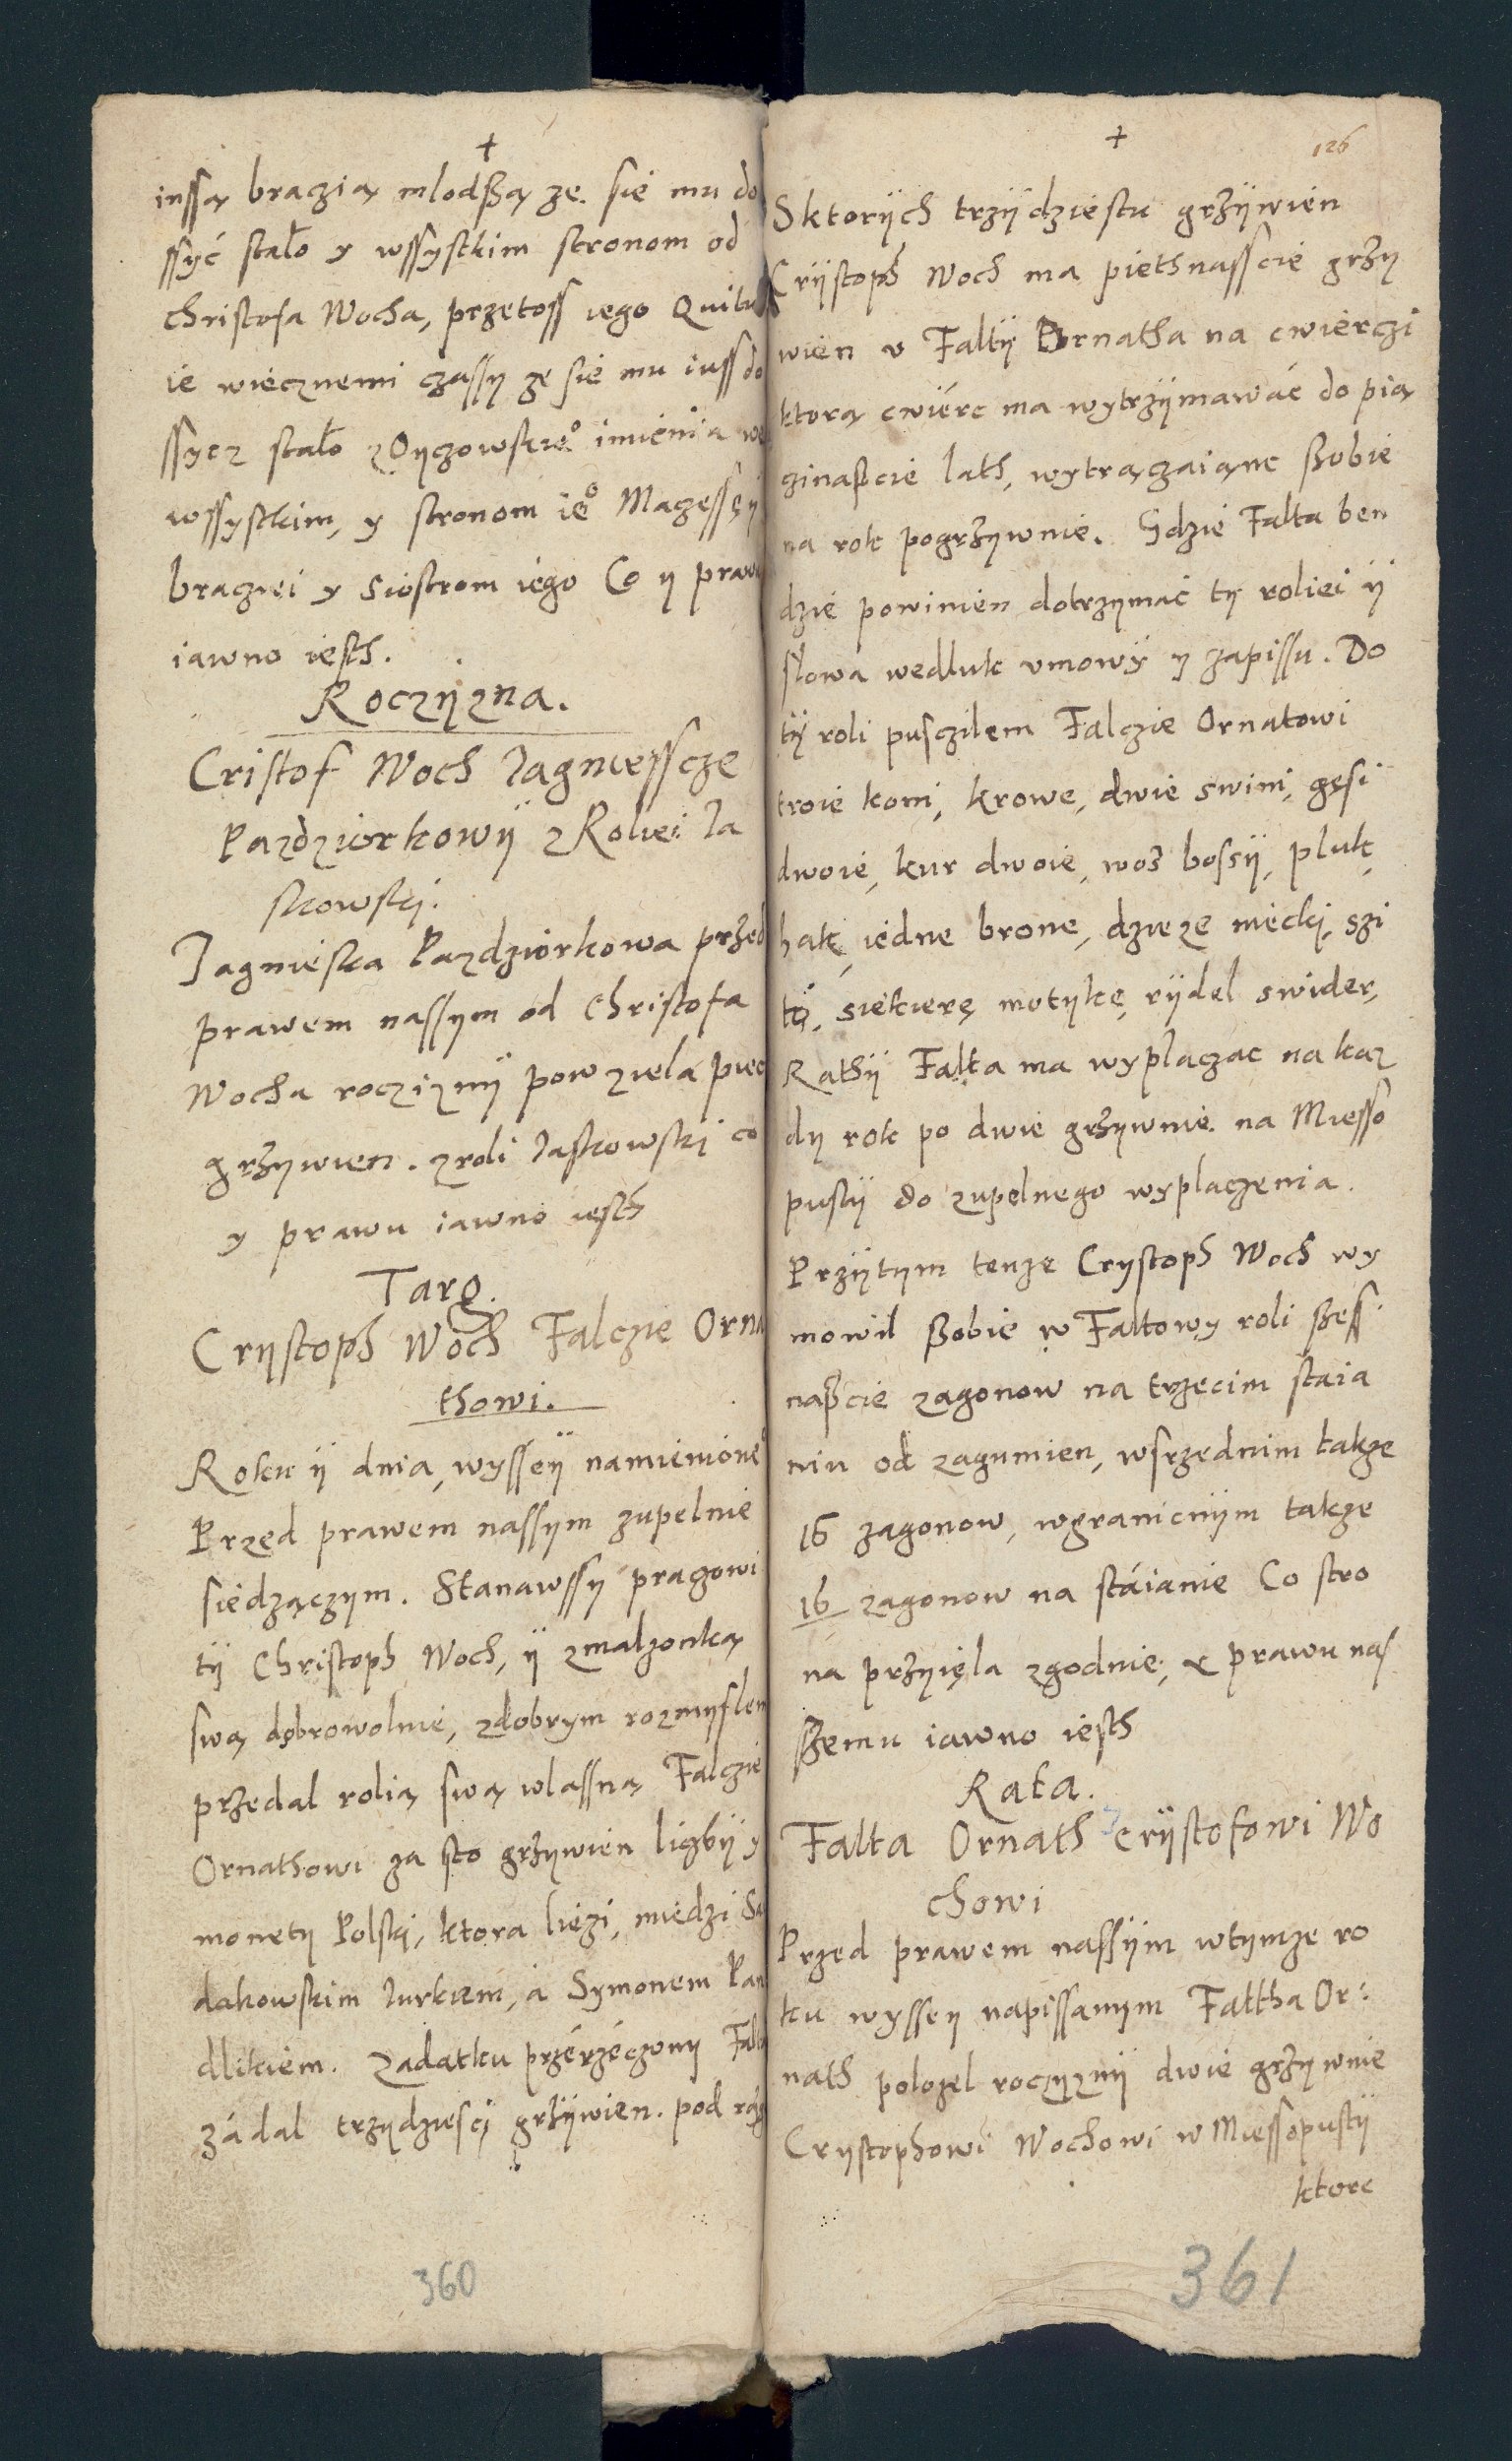 +
inssą braczią mlodßą ze. sie mu do
ssyć stało y wssystkim stronom od
Christofa Wocha, przetoss iego Quitu
ie wiecznemi czassy ze sie mu iuss do
ssycz stało zOyczowskie⁰ imienia we
wssystkim, y stronom ie⁰ Magessęÿ
bracziei y Siostrom iego Co y prawu
iawno iesth.
Roczyzna.
Cristof Woch Jagniessce
Pazdziorkowÿ z Roliei Ja
skowski.
Jagnieska Pazdziorkowa przed
prawem nassym od Christofa
Wocha roczizny powziela piec
grzywien. zroli Jaskowski co
y prawu iawno iesth
Targ.
Crystoph Woch Falczie Orna
thowi.
Roku ÿ dnia, wysseÿ namienione⁰
Przed prawem nassym zupelnie
siedzączym. Stanawssy pragowi
tÿ Christoph Woch, ÿ zmalzonką
swą dobrowolnie, zdobrym rozmyslem
przedal rolią swą wlassną Falczie
Ornathowi za sto grzywien liczbÿ y
monety Polski, ktora liezi, miedzi Sa
dakowskim Jurkiem, a Symonem Pan
dlikiem. Zadatku przérzéczony Falta
zádal trzydziesci grzÿwien. pod rąg
360
+
126
Sktorÿch trzÿdziestu grzÿwien
Crÿstoph Woch ma piethnasscie grzy
wien v Faltÿ Ornatha na cwierczi
ktorą cwiérc ma wytrzÿmawać do pią
czinaßcie lath, wytrączaiąnc ßobie
na rok pogrzywnie. Gdzie Falta ben
dzie powinien dotrzymać ty roliei ÿ
słowa wedluk vmowÿ y zapissu. Do
tÿ roli pusczilem Falczie Ornatowi
troie koni, krowe, dwie swini, gęsi
dwoie, kur dwoie, woz bossÿ, pluk,
hak, iedne brone, dzieze niecki, szi
to, siekierę motykę, rÿdel swider,
Rathÿ Falta ma wyplaczac na kaz
dy rok po dwie grzywnie. na Miesso
pustÿ do zupelnego wyplaczenia.
Przÿtym tenze Crystoph Woch wy
mowil ßobie w Faltowy roli ßess
naßcie zagonow na trzecim staia
niu od zagumien, wsrzednim takze
16 zagonow, wgranicnÿm takze
16 zagonow na stáianie Co stro
na przyięla zgodnie; & prawu nas
ßemu iawno iesth
Rata.
Falta Ornath Crÿstofowi Wo
chowi
Przed prawem nassÿm wtymze ro
ku wyssey napissanym Faltha Or:
nath polozel roczyznÿ dwie grzywnie
Crystophowi Wochowi w Miessopustÿ
ktore
361